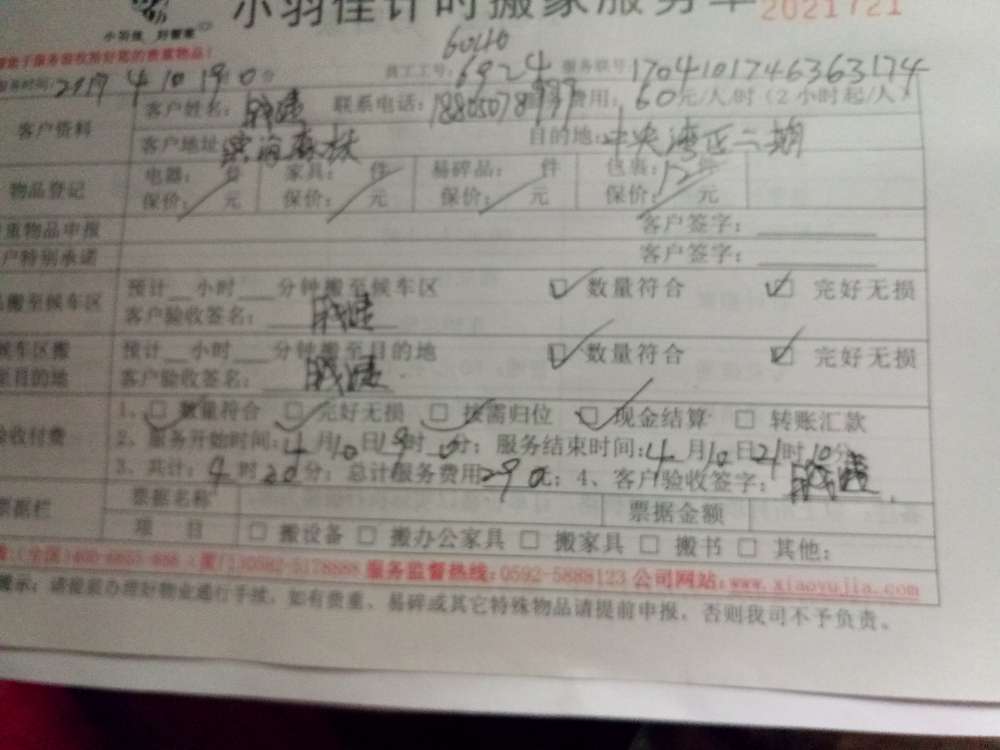 小羽佳计时搬家服务单 2021721
小羽佳 好管家
服务时间: 2017 4 10 19 0分 员工工号: 6040 6924 服务联号: 1704101746363174
客户资料 客户姓名: 联系电话: 费用: 60元/人/时(2小时起/人)
客户地址 滨海森林 目的地: 中央湾区二期
物品登记 电器: 件 家具: 件 易碎品: 件 包裹: 12件
保价: 元 保价: 元 保价: 元 保价: 元
重物品申报 客户签字:
户特别承诺 客户签字:
搬至候车区 预计__小时___分钟搬至候车区 ☑数量符合 ☑完好无损
客户验收签名:
候车区搬至目的地 预计__小时___分钟搬至目的地 ☑数量符合 ☑完好无损
客户验收签名:
验收付费 1、☑数量符合 ☑完好无损 ☑按需归位 ☑现金结算 □转账汇款
2、服务开始时间: 4月10日19时0分; 服务结束时间: 4月10日21时10分
3、共计: 4时20分; 总计服务费用290元; 4、客户验收签字:
票据栏 票据名称 票据金额
项 目 □搬设备 □搬办公家具 □搬家具 □搬书 □其他:
(全国)400-6855-888 (厦门)0592-5178888 服务监督热线: 0592-5888123 公司网站: www.xiaoyujia.com
提示: 请提前办理好物业通行手续, 如有贵重、易碎或其它特殊物品请提前申报, 否则我司不予负责。